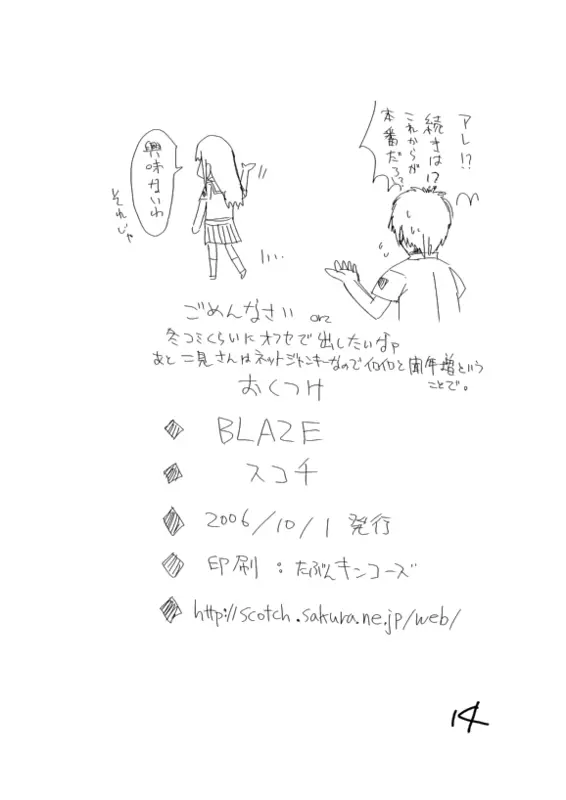 アレ!?
続きは!?
これからが
本番だろ
興味ないわ
それじゃ
ごめんなさい orz
冬コミくらいにオフセで出したいなァ
あと二見さんはネットジャンキーなのでイロイロと 増という
ことで。
おくつけ
BLAZE
スコチ
2006/10/1 発行
印刷:たぶんキンコーズ
http://scotch.sakura.ne.jp/web/
14